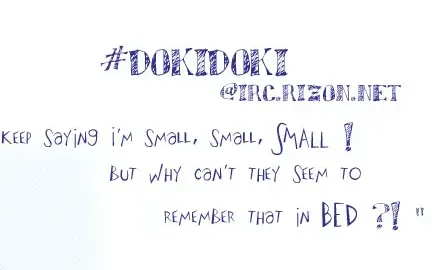 #DOKIDOKI
@IRC.RIZON.NET
KEEP SAYING I'M SMALL, SMALL, SMALL !
BUT WHY CAN'T THEY SEEM TO
REMEMBER THAT IN BED ?! "